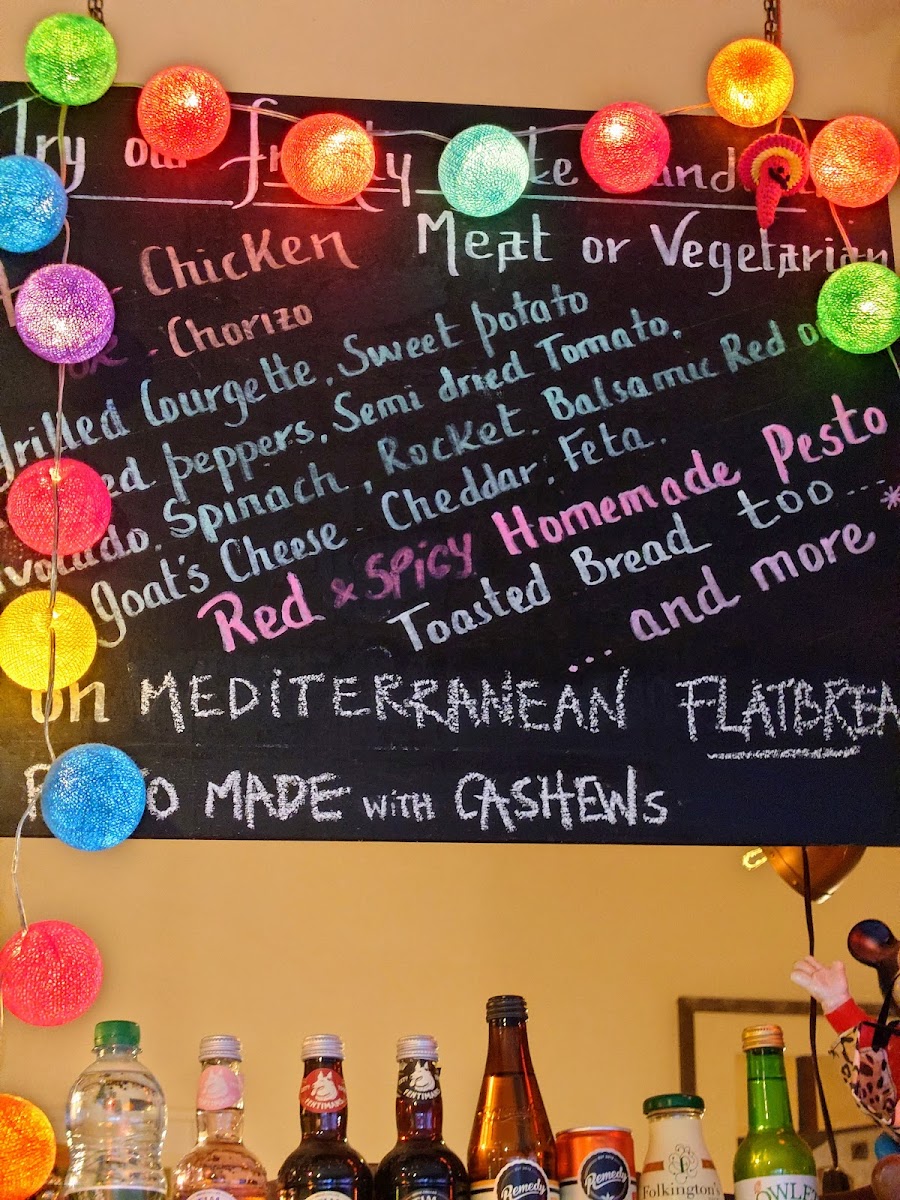 Try our
Chicken Meat or Vegetarian
. Chorizo
Grilled Courgette, Sweet potato
peppers, Semi dried Tomato,
Avocado, Spinach, Rocket, Balsamic Red
Goat's Cheese - Cheddar, Feta.
Red & SPICY Homemade Pesto
Toasted Bread too...
... and more *
on MEDITERRANEAN FLATBREA
MADE WITH CASHEWS
FENTIMANS
Remedy
Remedy
Folkington's